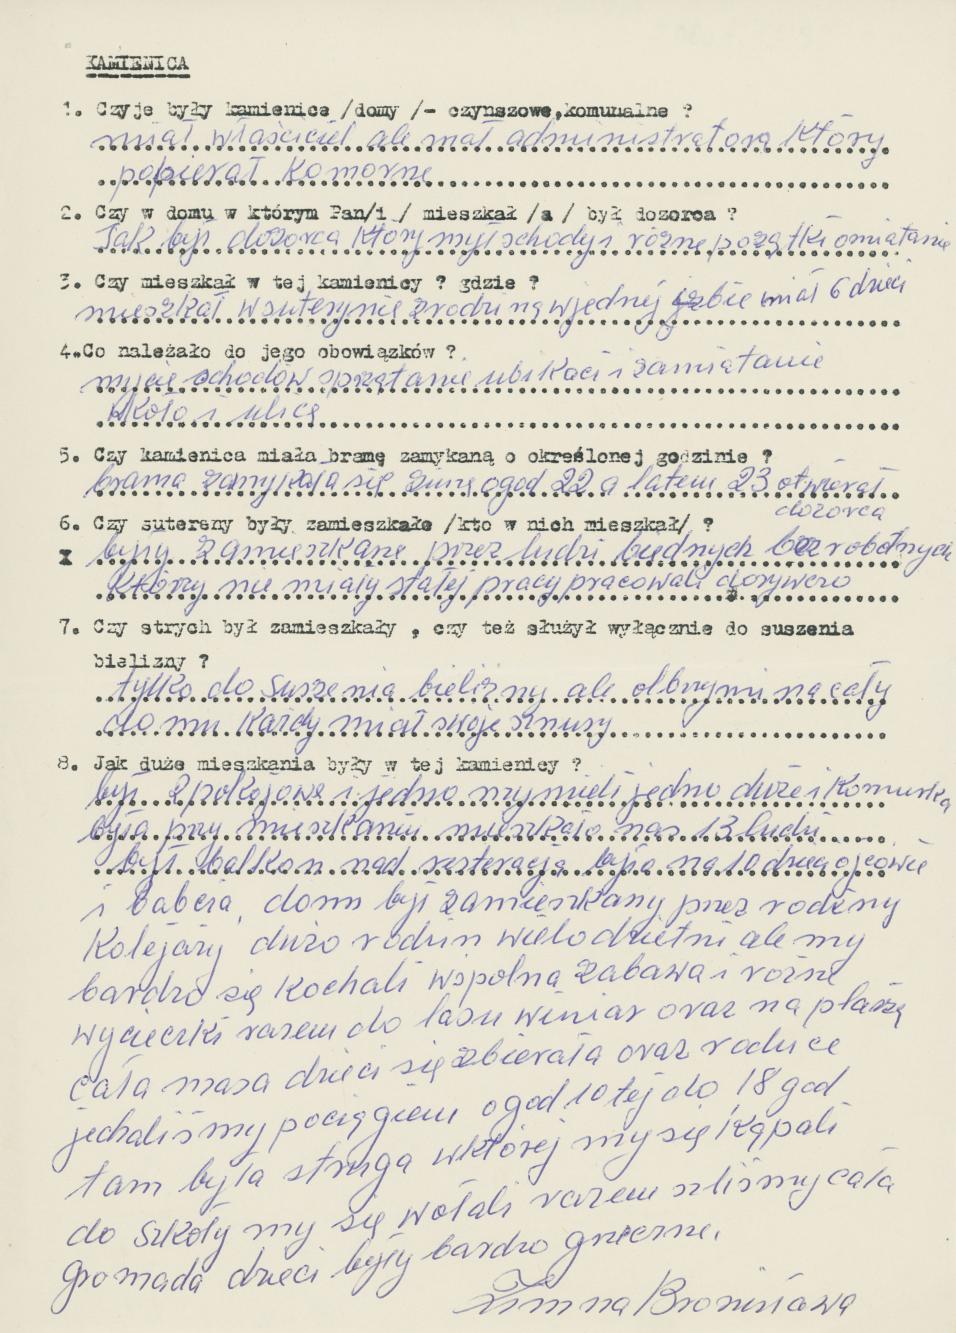 KAMIENICA
1. Czyje były kamienice /domy /- czynszowe,komunalne ?
miał właściciel ale mał administratora który
pobierał Komorne
2. Czy w domu w którym Pan/i / mieszkał /a / był dozorca ?
Tak był dozorca który mył schody i różne porządki omiatanie
3. Czy mieszkał w tej kamienicy ? gdzie ?
mieszkał w suterynie z rodziną w jednej izbie miał 6 dzieci
4.Co należało do jego obowiązków ?
mycie schodów sprzątanie ubikaci i zamiatanie
wkoło i ulicę
5. Czy kamienica miała bramę zamykaną o określonej godzinie ?
brama zamykała się zimą o god 22 a latem 23 otwierał
dozorca
6. Czy sutereny były zamieszkałe /kto w nich mieszkał/ ?
były zamieszkane przez ludzi biednych bezrobotnych
którzy nie miały stałej pracy pracowali dorywczo
7. Czy strych był zamieszkały , czy też służył wyłącznie do suszenia
bielizny ?
tylko do suszenia bielizny ale olbrzymi na cały
domu każdy miał swoje sznury
8. Jak duże mieszkania były w tej kamienicy ?
był 2 pokojowe i jedno my mieli jedno duże i Komurka
była przy mieszkaniu mieszkało nas 13 ludzi
był balkon nad resteracją była na 10 dzieci ojcowie
i babcia, dom był zamieszkany przez rodziny
Kolejarzy dużo rodzin wielodzietni ale my
bardzo się kochali wspolna zabawa i różne
wycieczki razem do lasu winiar oraz na plażą
cała masa dzieci się zbierała oraz rodzice
jechaliśmy pociągiem o god 10 tej do 18 god
tam była struga w której my się kąpali
do szkoły my się wołali razem szliśmy cała
gromada dzieci były bardzo grzeczne.
Zimna Bronisława